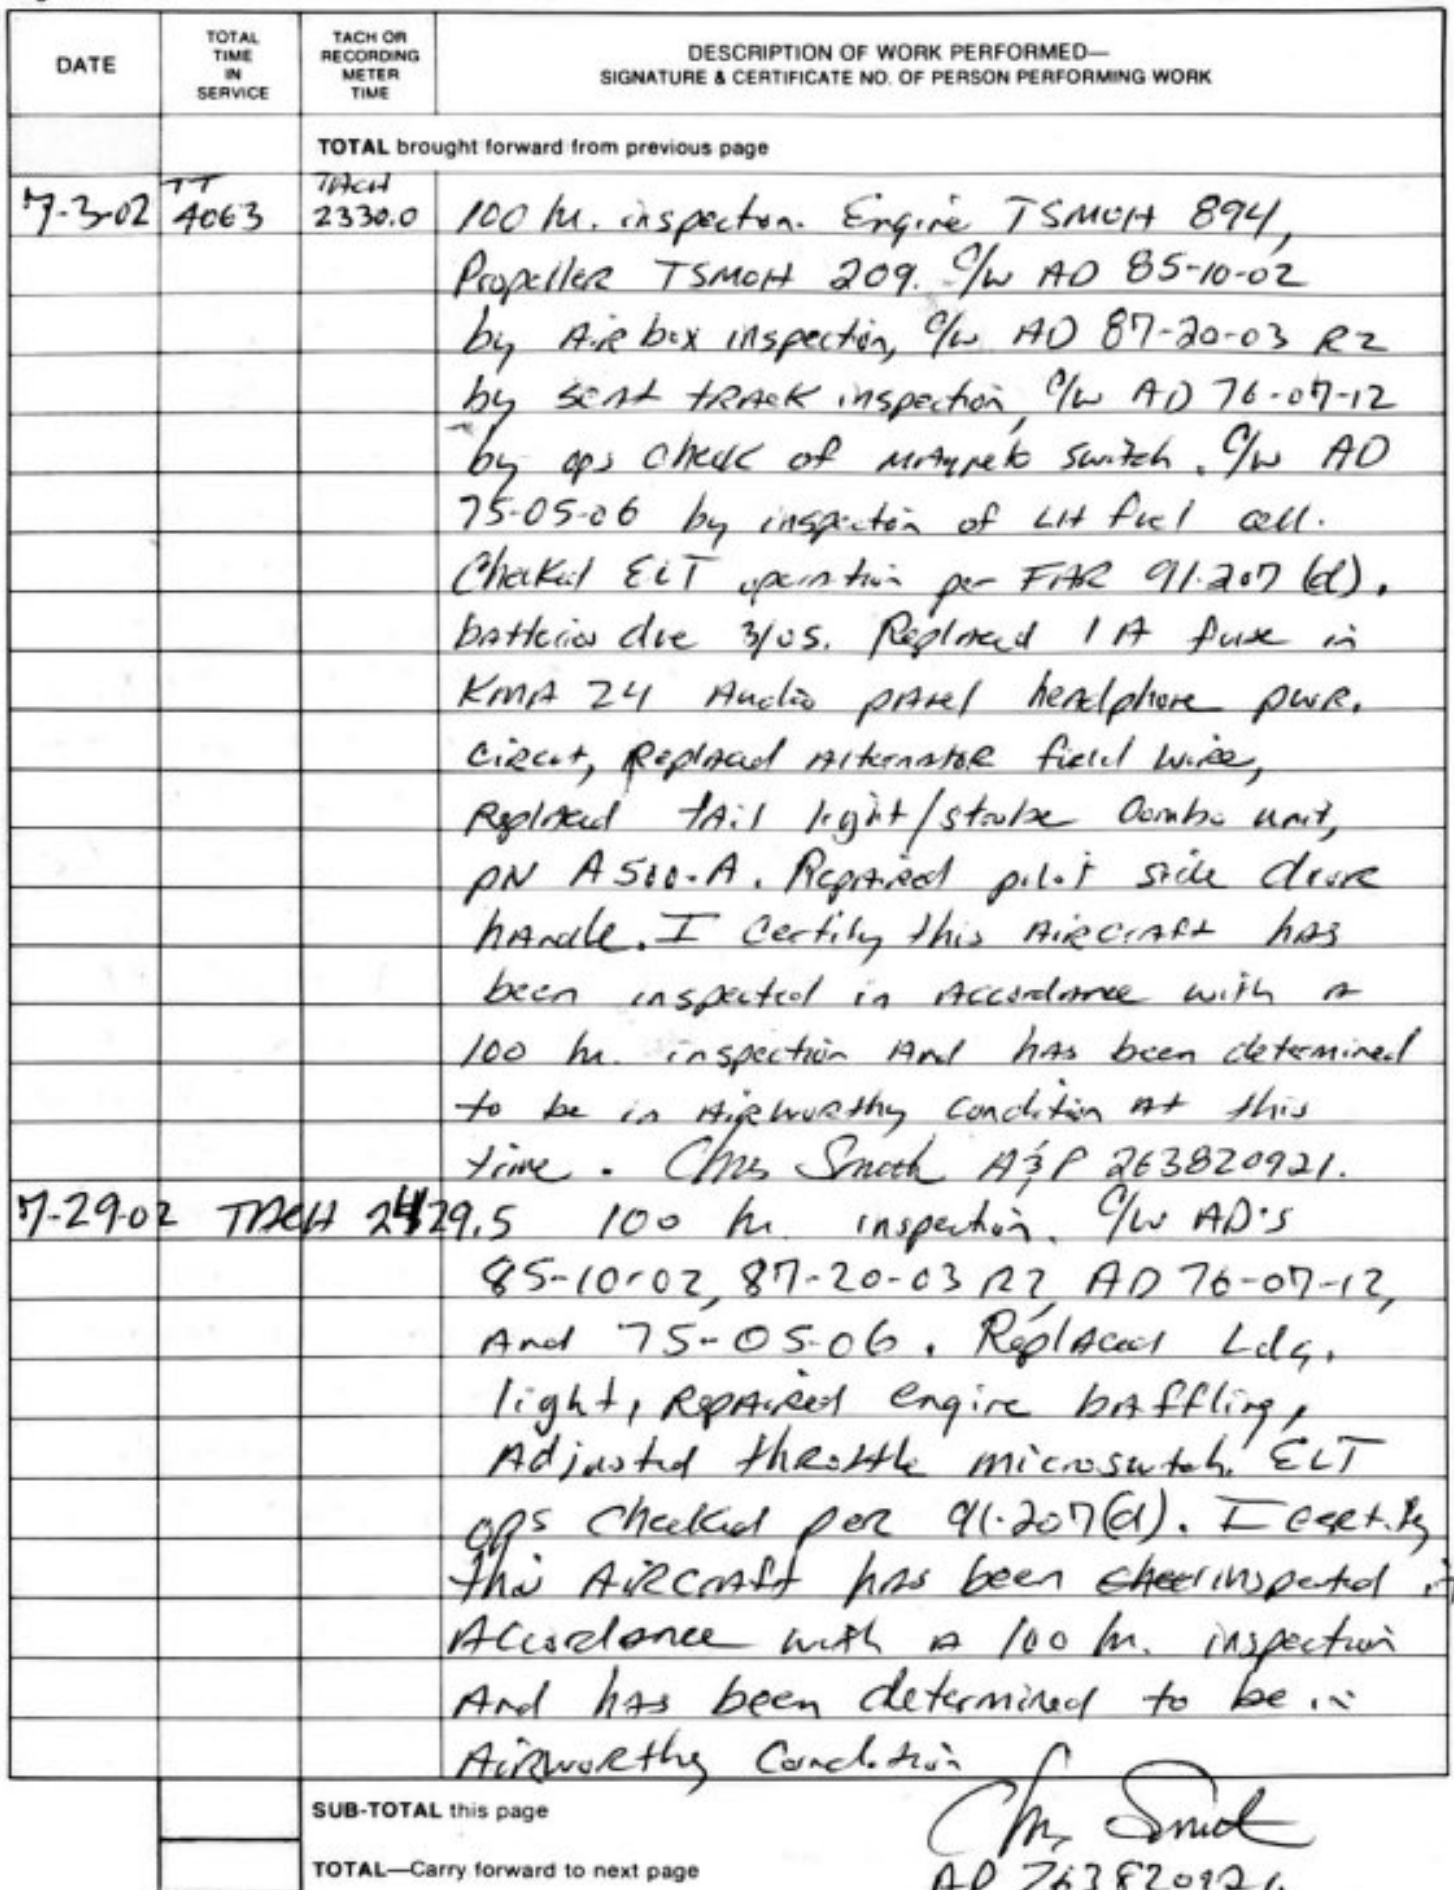 DATE
TOTAL TIME IN SERVICE
TACH OR RECORDING METER TIME
DESCRIPTION OF WORK PERFORMED—
SIGNATURE & CERTIFICATE NO. OF PERSON PERFORMING WORK
TOTAL brought forward from previous page
TT TACH
7-3-02 4063 2330.0 100 hr. inspecton. Engine TSMOH 894,
Propeller TSMOH 209. C/W AD 85-10-02
by Air box inspection, C/W AD 87-20-03 R2
by seat track inspection, C/W AD 76-07-12
by ops check of magneto switch. C/W AD
75-05-06 by inspection of LH fuel cell.
Checked ELT operation per FAR 91.207 (d).
batteries due 3/05. Replaced 1 A fuse in
KMA 24 Audio panel headphone pwr.
circut, Replaced Alternator field wire,
Replaced tail light/strobe combo unit,
PN A500-A. Repaired pilot side door
handle. I certify this Aircraft has
been inspected in Accordance with a
100 hr. inspection And has been determined
to be in Airworthy Condition At this
time. Chris Smith A&P 263820921.
7-29-02 TACH 2429.5 100 hr inspection. C/W AD's
85-10-02, 87-20-03 R2, AD 76-07-12,
And 75-05-06. Replaced Ldg.
light, Repaired engine baffling,
Adjusted throttle microswitch. ELT
ops checked per 91.207(d). I certify
this Aircraft has been inspected in
Accordance with a 100 hr. inspection
And has been determined to be in
Airworthy Condition
SUB-TOTAL this page Chris Smith
TOTAL—Carry forward to next page AP 263820921